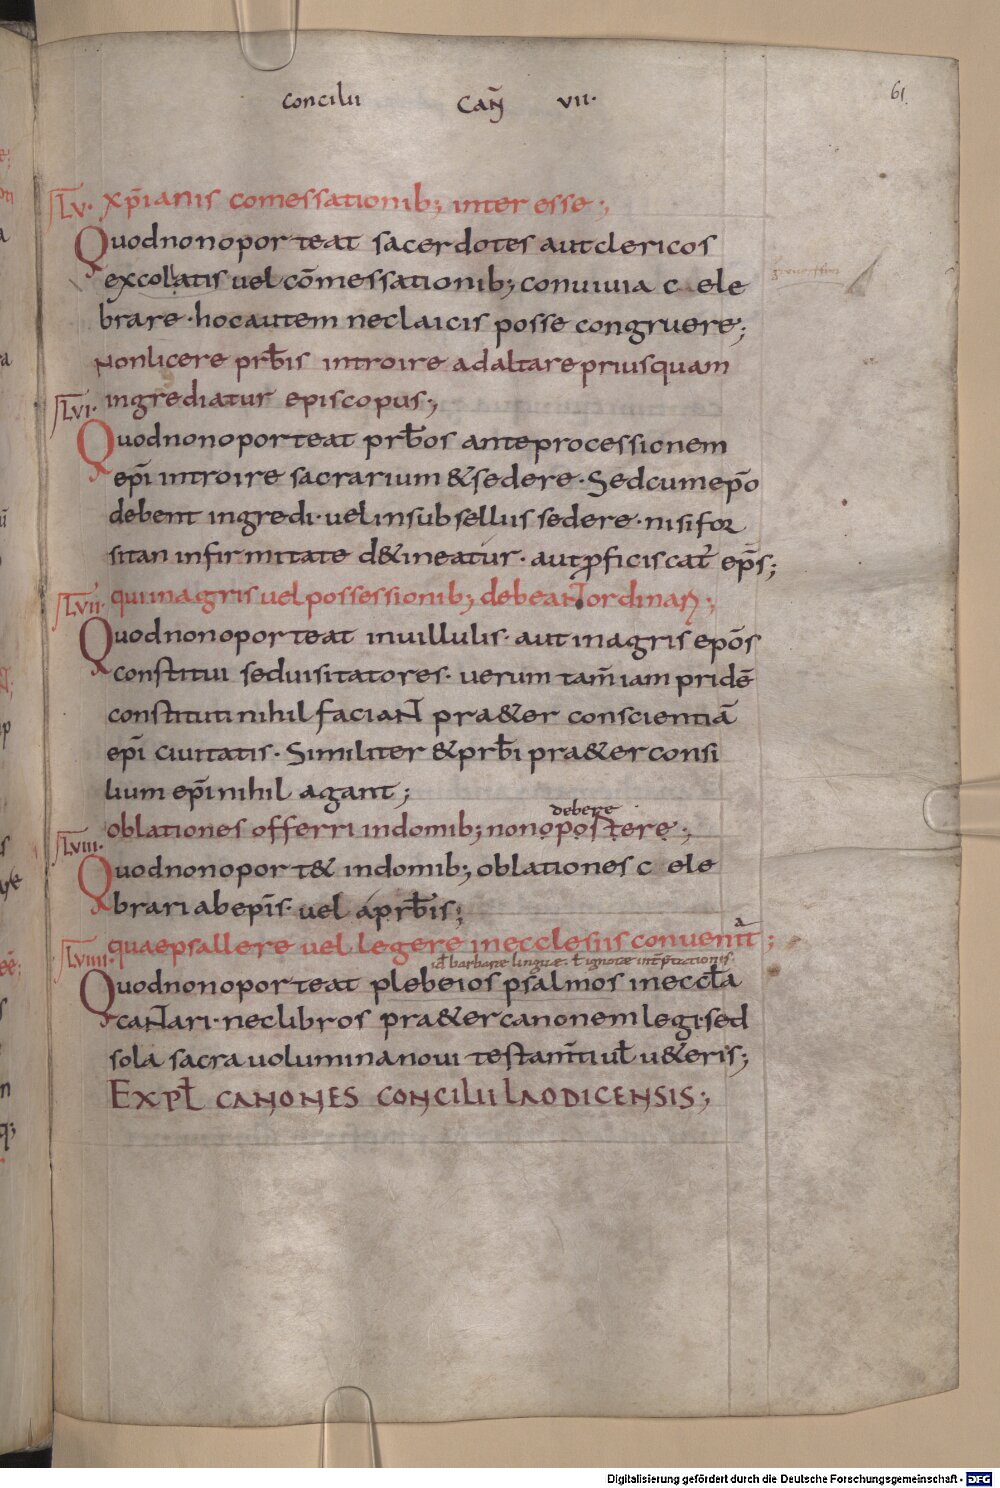 concilii CAÑ VII·
61
LV· xp̄ianis comessationib; interesse;
Quod non oporteat sacerdotes aut clericos
ex colatis uel cōmessationib; conuiuia c ele
brare · hoc autem nec laicis posse congruere;
Non licere prb̄is introire ad altare priusquam
LVI· ingrediatur episcopus;
Quod non oporteat prb̄os ante processionem
ep̄i introire sacrarium & sedere · Sed cum ep̄o
debent ingredi · uel in subselliis sedere · nisi for
sitan infirmitate d&ineatur · aut p̱ficiscat̄ ep̄s;
LVII· qui in agris uel possessionib; debeant ordinari;
Quod non oporteat in uillulis · aut in agris ep̄os
constitui sed uisitatores · uerum tam̄ iam pridē
constituti nihil faciant pra&er conscientiā
ep̄i ciuitatis · Similiter & prb̄i pra&er consi
lium ep̄i nihil agant;
debere
LVIII· oblationes offerri in domib; non opostere;
Quod non oport& in domib; oblationes c ele
brari ab ep̄is · uel a prb̄is;
a
LVIIII· quae psallere uel legere in ecclesiis conuenit̄;
id̄ barbarae linguae · ł ignotae int̄p̄tationis·
Quod non oporteat plebeios psalmos in eccła
cantari · nec libros pra&er canonem legi · sed
sola sacra uolumina noui testam̄ti uł u&eris;
EXPŁ CANONES CONCILII LAODICENSIS;
Digitalisierung gefördert durch die Deutsche Forschungsgemeinschaft - DFG